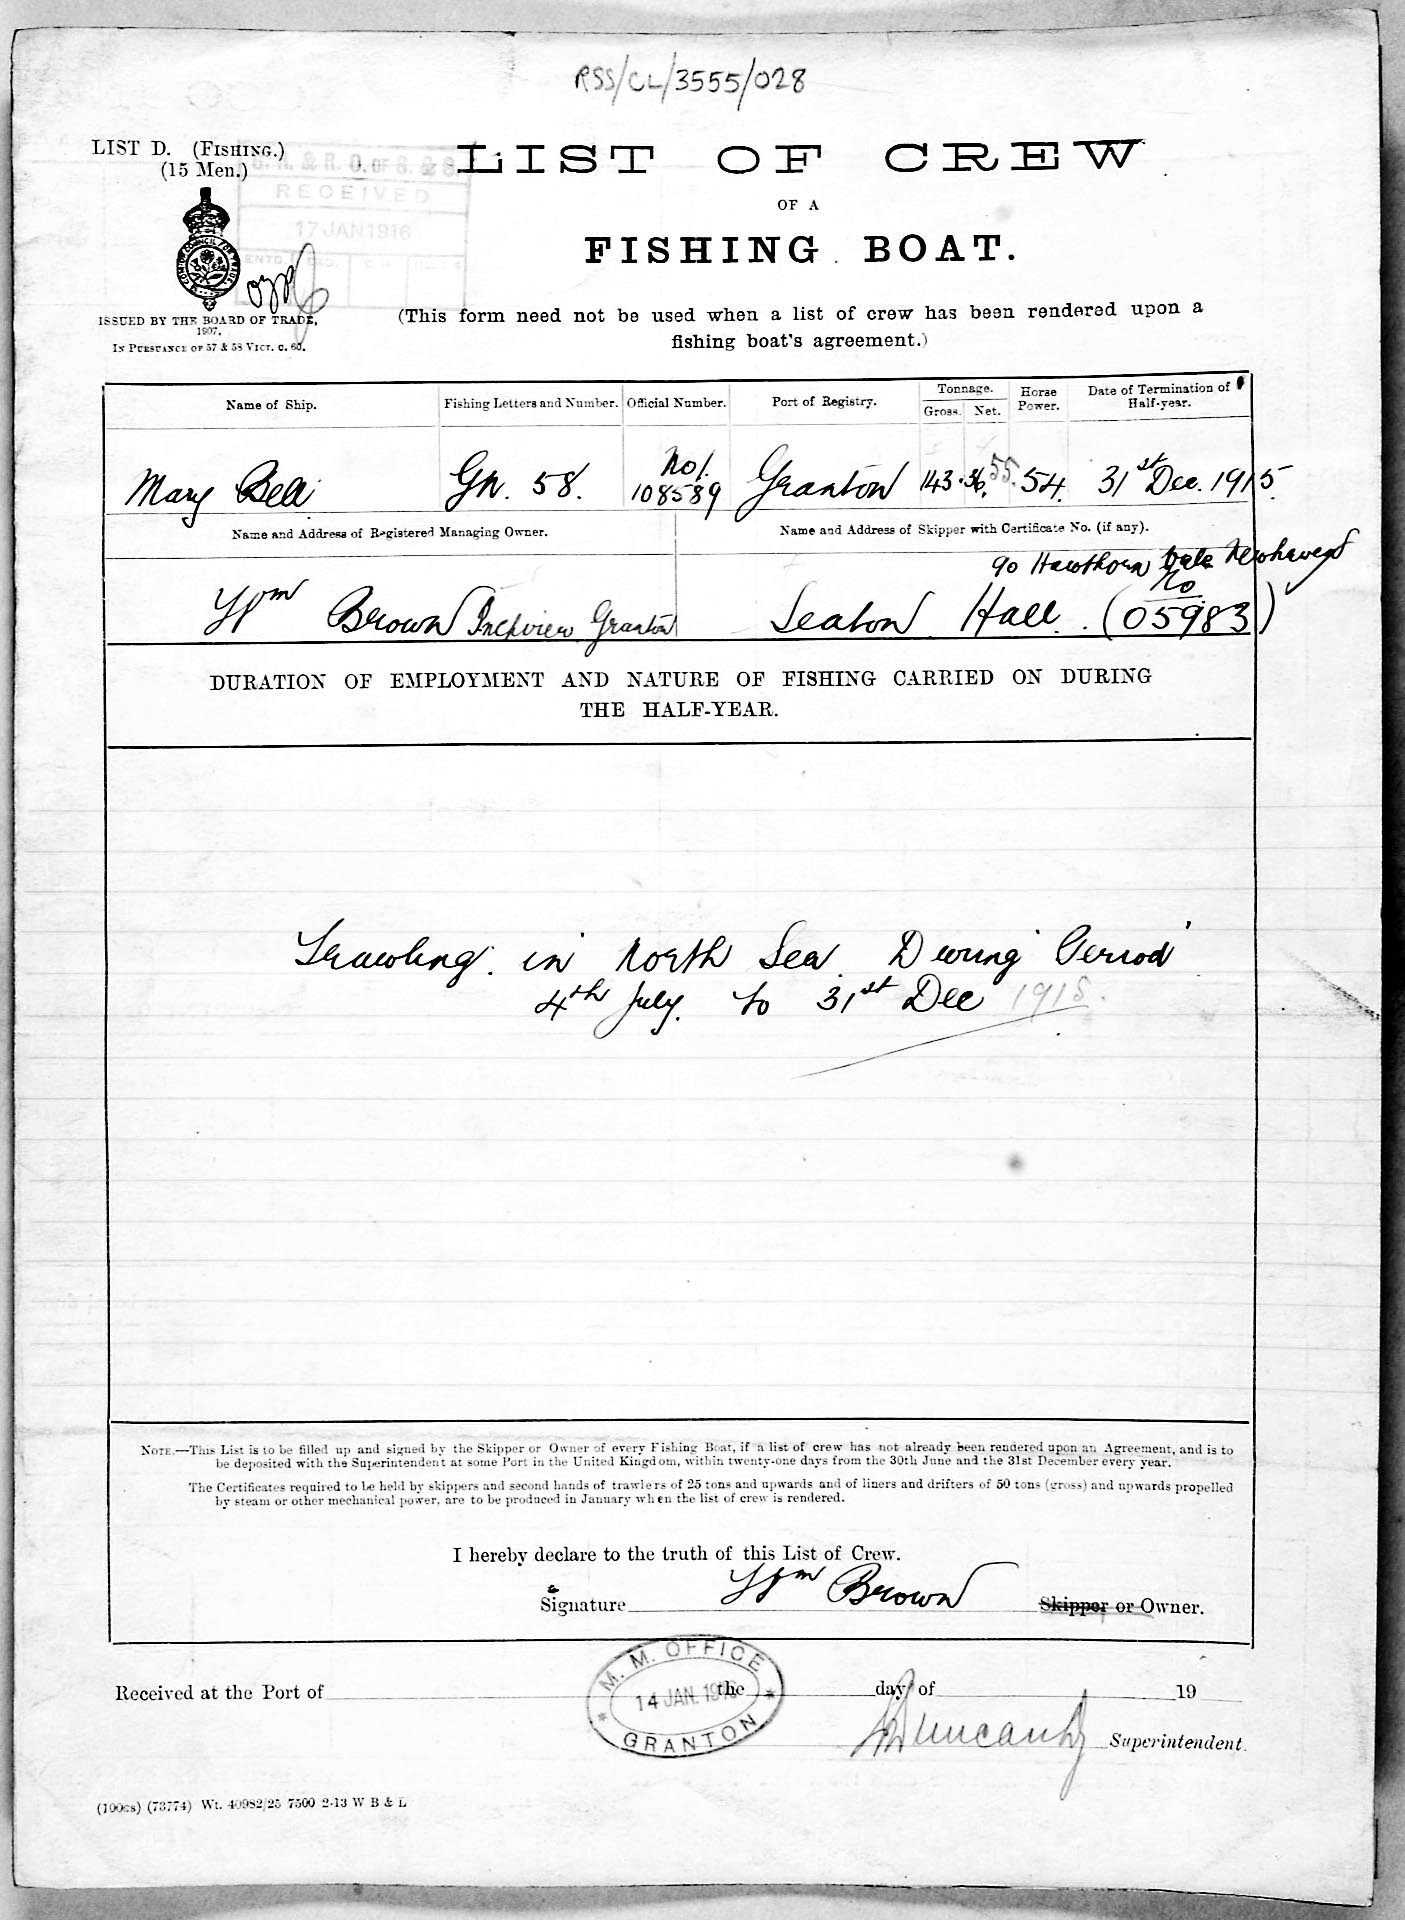 RSS/CL/3555/028
LIST D. (FISHING.)
(15 Men.)
G. R. & R. O. OF S. & S.
RECEIVED
17 JAN 1916
ISSUED BY THE BOARD OF TRADE,
1907,
IN PURSUANCE OF 57 & 58 VICT. C. 60.
LIST OF CREW
OF A
FISHING BOAT.
(This form need not be used when a list of crew has been rendered upon a
fishing boat's agreement.)
Name of Ship.
Fishing Letters and Number.
Official Number.
Port of Registry.
Tonnage.
Gross. Net.
Horse
Power.
Date of Termination of
Half-year.
Mary Bell
GN. 58.
No/.
108589
Granton
143. 36. 55.
54.
31st Dec. 1915.
Name and Address of Registered Managing Owner.
Name and Address of Skipper with Certificate No. (if any).
90 Hawthorn Newhaven
Wm Brown Inchview Granton
Seaton Hall. (No 05983)
DURATION OF EMPLOYMENT AND NATURE OF FISHING CARRIED ON DURING
THE HALF-YEAR.
Trawling. in North Sea. During Period
4th July. to 31st Dec 1915.
NOTE.—This List is to be filled up and signed by the Skipper or Owner of every Fishing Boat, if a list of crew has not already been rendered upon an Agreement, and is to
be deposited with the Superintendent at some Port in the United Kingdom, within twenty-one days from the 30th June and the 31st December every year.
The Certificates required to be held by skippers and second hands of trawlers of 25 tons and upwards and of liners and drifters of 50 tons (gross) and upwards propelled
by steam or other mechanical power, are to be produced in January when the list of crew is rendered.
I hereby declare to the truth of this List of Crew.
Signature Wm Brown Skipper or Owner.
M. M. OFFICE
14 JAN. 19
GRANTON
Received at the Port of the day of 19
Superintendent.
(100cs) (73774) Wt. 40982/25 7500 2-13 W B & L